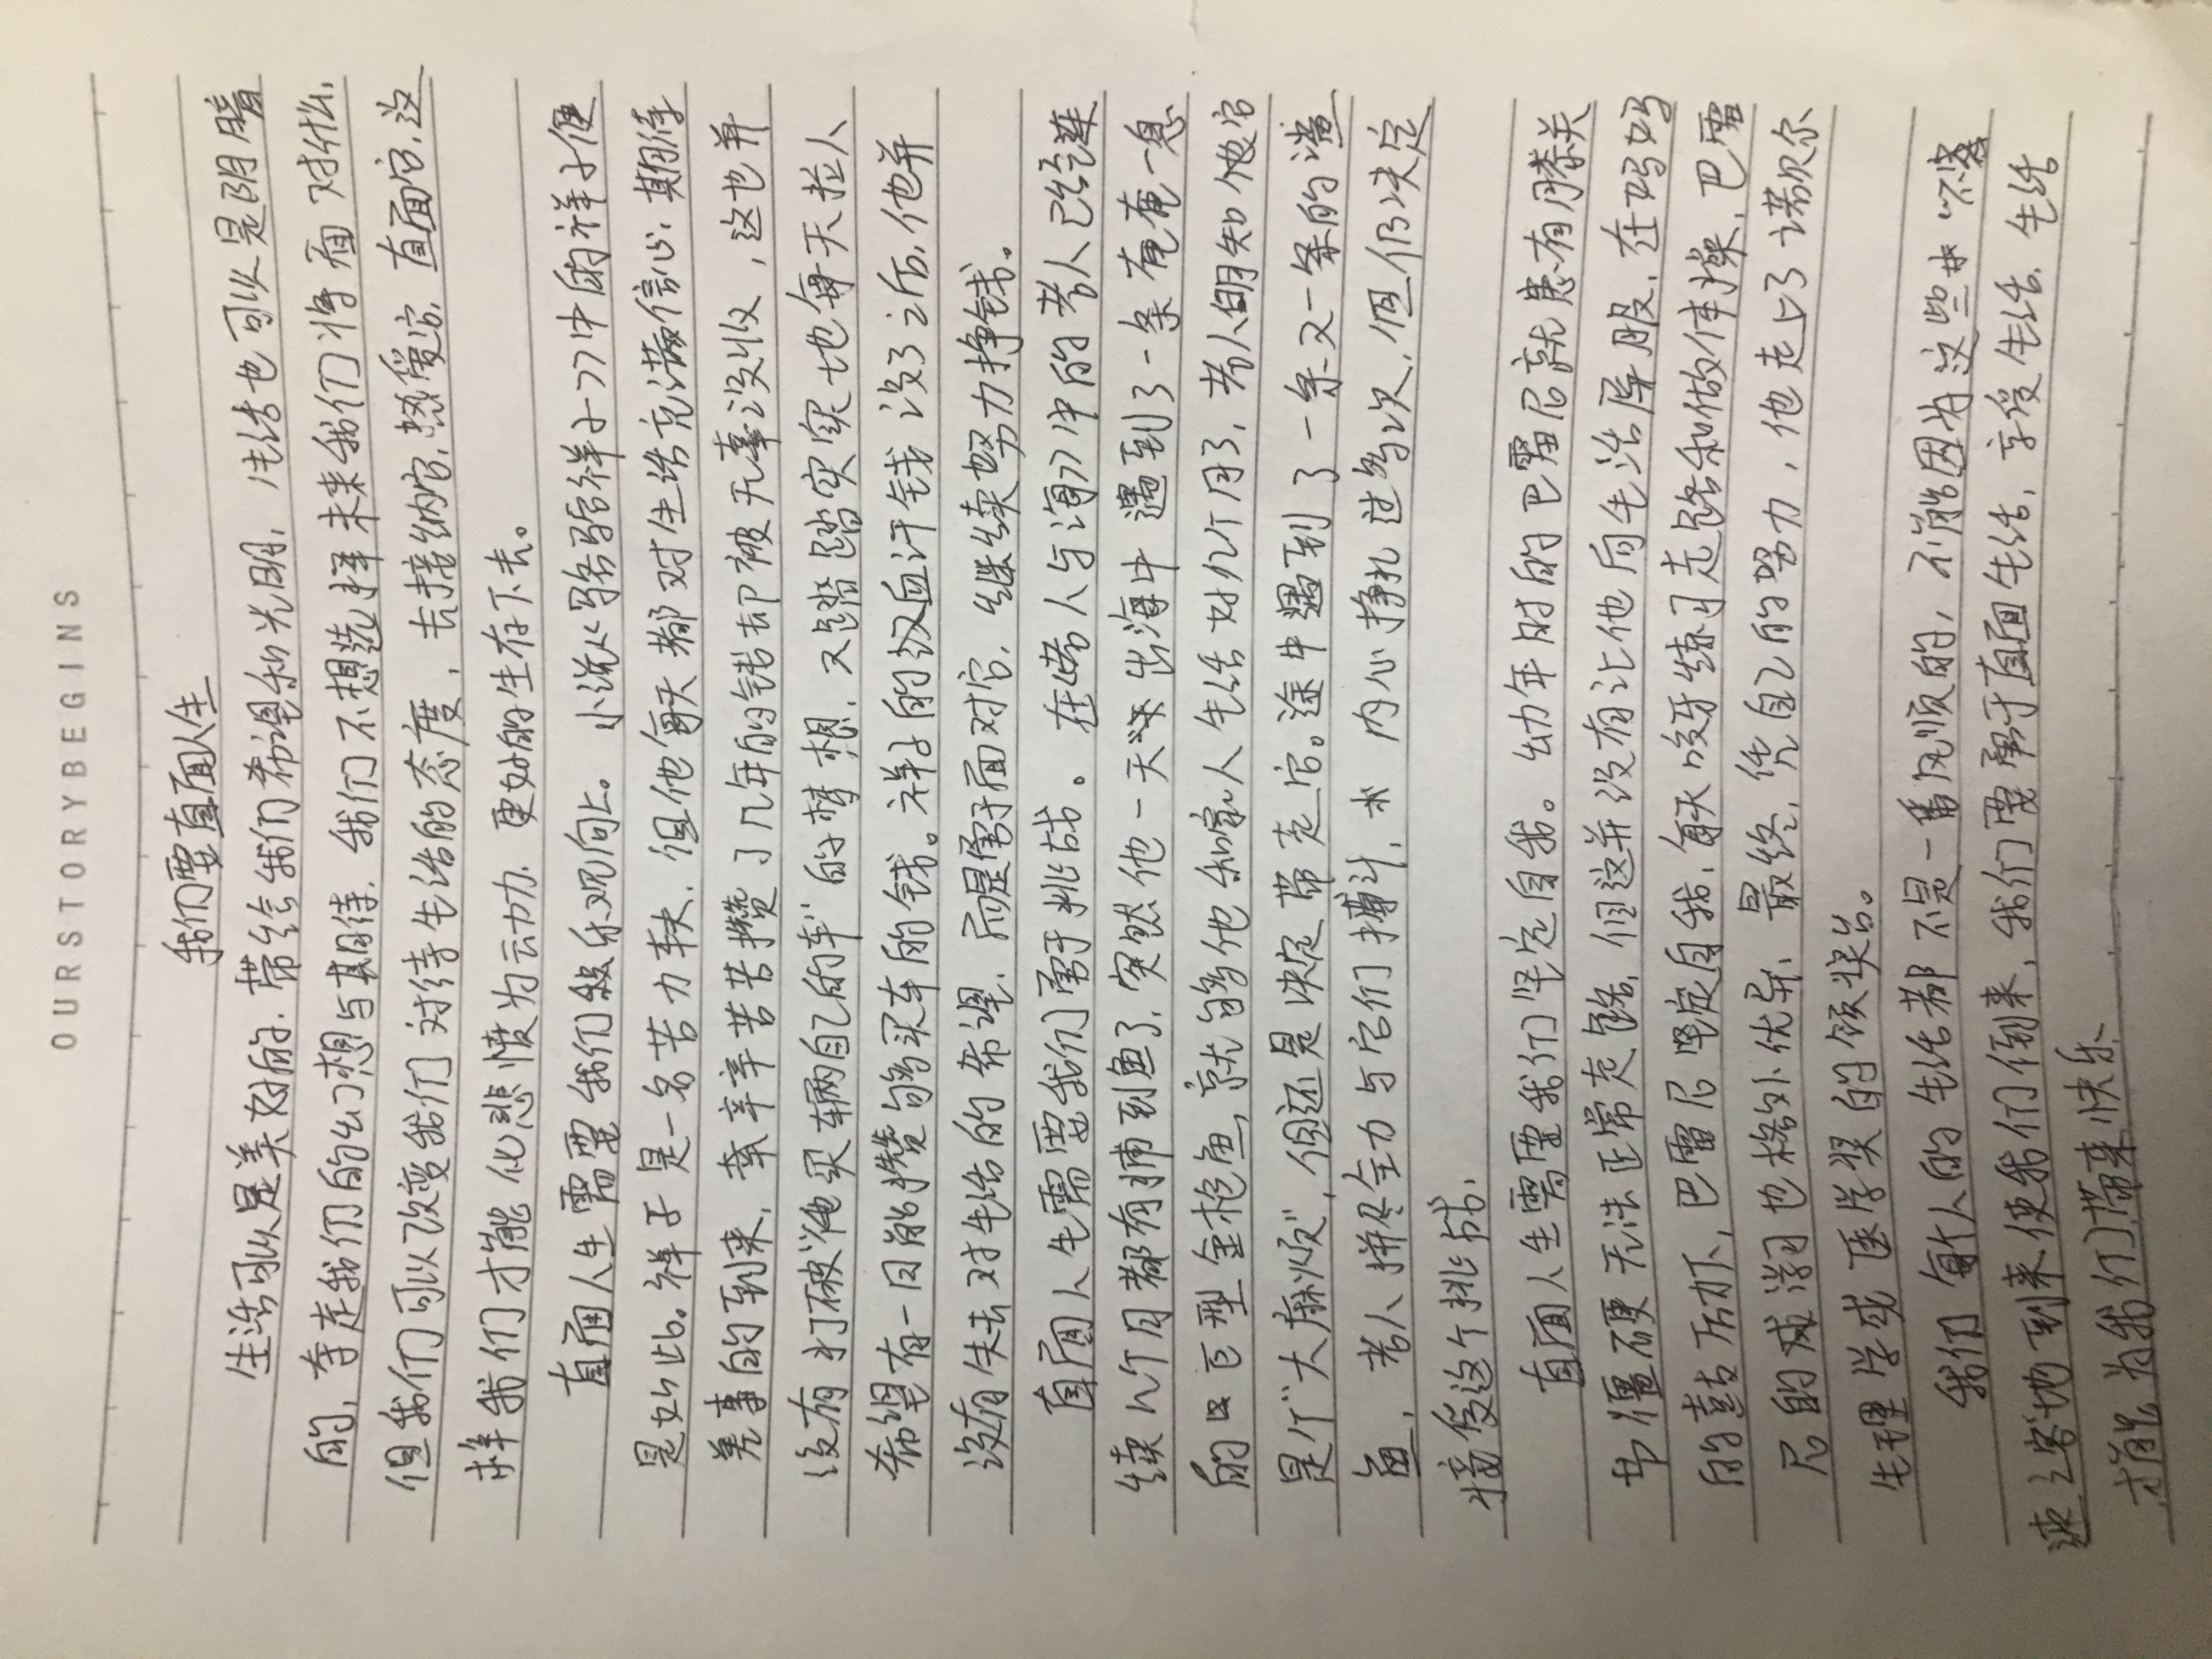 OURSTORYBEGINS
我们要直面人生
生活可以是美好的，带给我们希望和光明，生活也可以是阴暗
的，夺走我们的幻想与期待，我们不想选择未来我们将面对什么，
但我们可以改变我们对待生活的态度，去接纳它，热爱它，直面它，这
样我们才能化悲愤为动力，更好的生存下去。
直面人生需要我们积极乐观向上。小说《骆驼祥子》中的祥子便
是如此。祥子是一名苦力车夫，但他每天都对生活充满信心，期待
差事的到来，辛辛苦苦攒了几年的钱却被无辜没收，这也并
没有打破“他买辆自己的车”的梦想，又踏踏实实地每天拉人
希望有一日能攒够买车的钱。祥子的汉血汗钱没了之后，他并
没有失去对生活的希望，而是勇于面对它，继续努力挣钱。
直面人生需要我们勇于挑战。在《老人与海》中的老人已经连
续几个月都有捕到鱼了，突然他一天出海中遇到了一条奄奄一息
的巨型金枪鱼，就够他和家人生活好几个月了，老人明知他它
是个“大麻烦”，但还是决定带走它。途中遇到了一条又一条的鲨
鱼，老人拼尽全力与它们搏斗，内心挣扎过多次，但仍决定
接受这个挑战，
直面人生需要我们坚定自我。幼年时的巴雷尼就患有膝关
节僵硬无法正常走路，但这并没有让他向生活屈服，在妈妈
的鼓励下，巴雷尼坚定自我，每天咬牙练习走路和做体操，巴雷
尼的成学习也格外优异，最终，凭自己的努力，他走上了诺贝尔
生理学或医学奖的领奖台。
我们每个人的生活都不是一番风顺的，不能因为这些“不
速之客”地到来使我们倒来，我们要勇于直面生活，享受生活，生活
才能为我们带来快乐